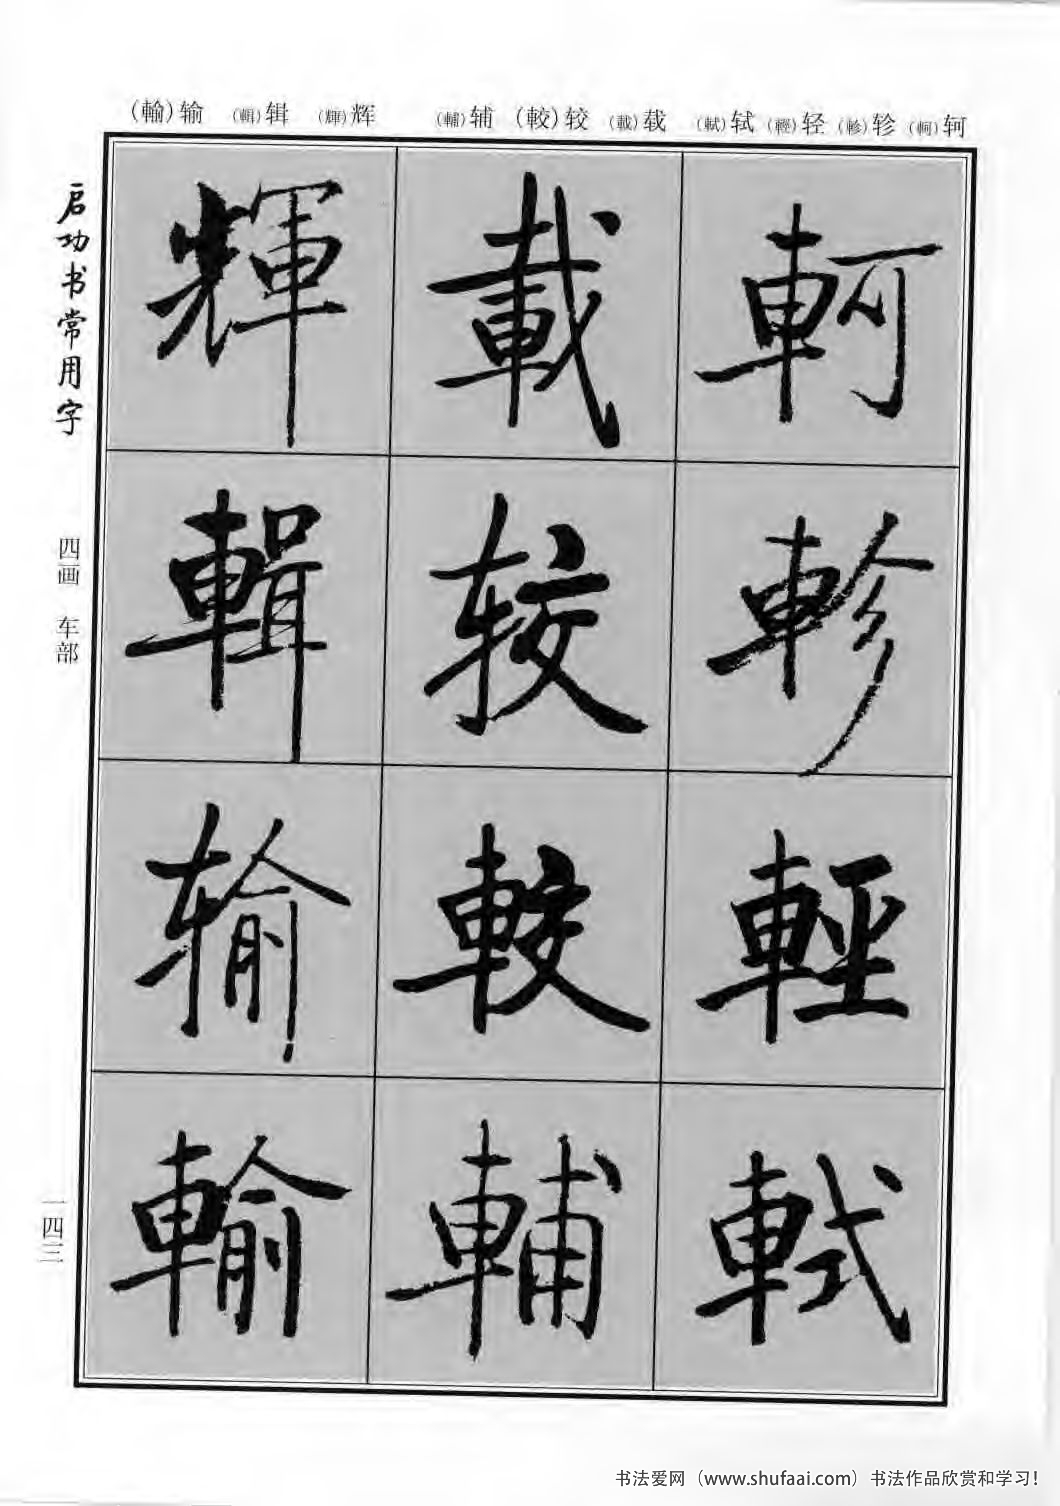 (輸)输 (輯)辑 (輝)辉 (輔)辅 (較)较 (載)载 (軾)轼 (輕)轻 (軫)轸 (軻)轲
軻
軫
輕
軾
載
较
較
輔
輝
輯
输
輸
启功书常用字
四画 车部
一四三
书法爱网（www.shufaai.com）书法作品欣赏和学习！